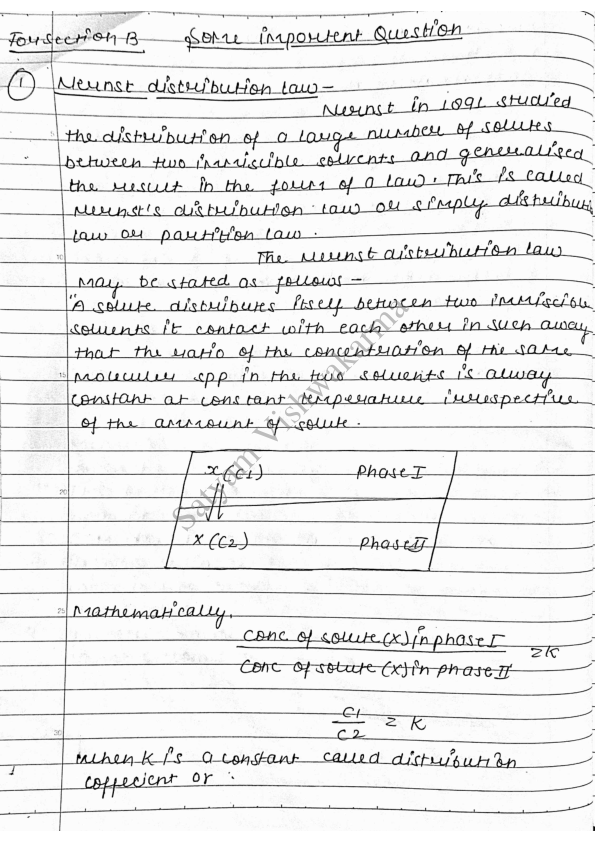 For section-B some importent Question
① Nernst distribution law -
Nernst in 1891 studied
the distribution of a large number of solutes
between two immiscible solvents and generalised
the result in the form of a law. This is called
Nernst's distribution law or simply distributi
law or partition law.
The Nernst distribution law
10
may be stated as follows -
"A solute distributes itself between two immiscible
solvents it contact with each other in such away
that the ratio of the concentration of the same
15 molecular spp in the two solvents is alway
constant at constant temperature irrespective
of the ammount of solute.
x (C1) Phase I
20
x (C2) Phase II
25 Mathematically,
Conc of solute (x) in phase I
Conc of solute (x) in phase II = K
C1
C2 = K
30
When K is a constant called distribution
coffecient or :
1
Satyam Vishwakarma